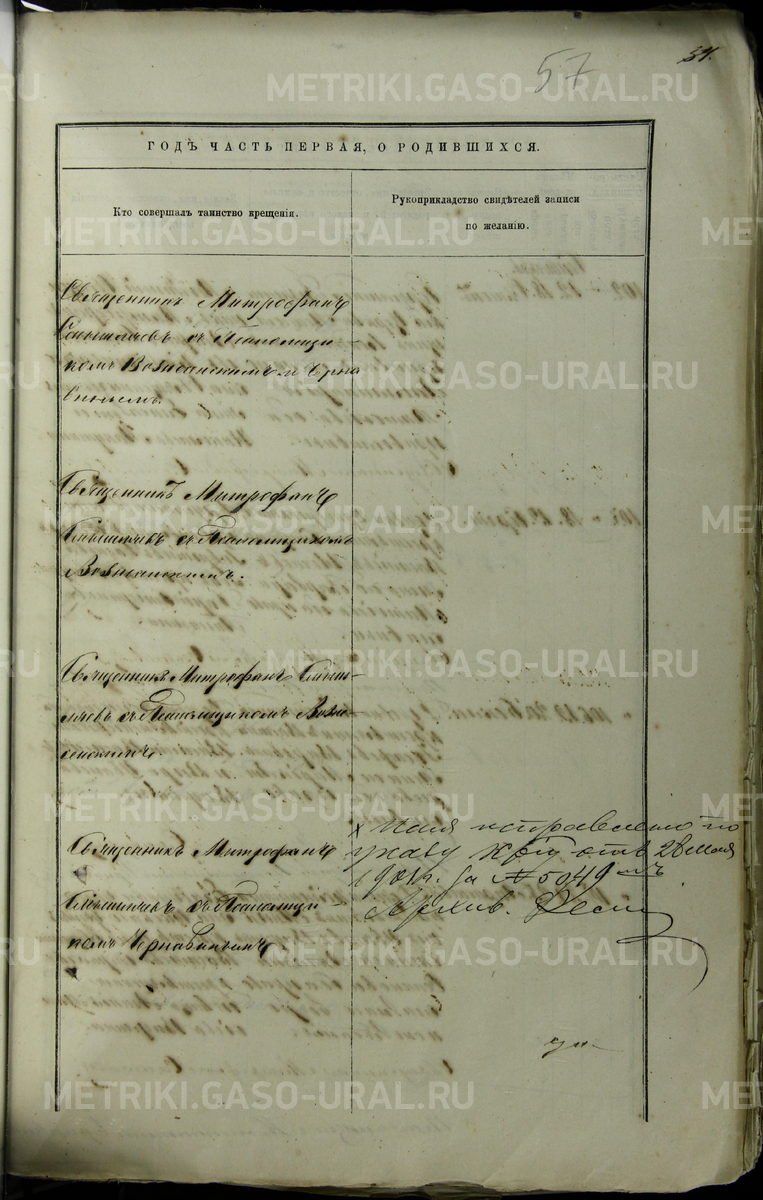 57
54.
ГОДЪ ЧАСТЬ ПЕРВАЯ, О РОДИВШИХСЯ.
Кто совершалъ таинство крещенія.
Рукоприкладство свидѣтелей записи
по желанію.
Священникъ Митрофанъ
съ Псаломщи-
комъ Вознесенскимъ и Черна
винымъ.
Священникъ Митрофанъ
съ Псаломщикомъ
Вознесенскимъ.
Священникъ Митрофанъ
съ Псаломщикомъ Возне
сенскимъ.
Священникъ Митрофанъ
съ Псаломщи-
комъ Чернавинымъ.
х имя исправлено по
указу отъ 28 мая
190 г. за № 5049
Архив.
METRIKI.GASO-URAL.RU